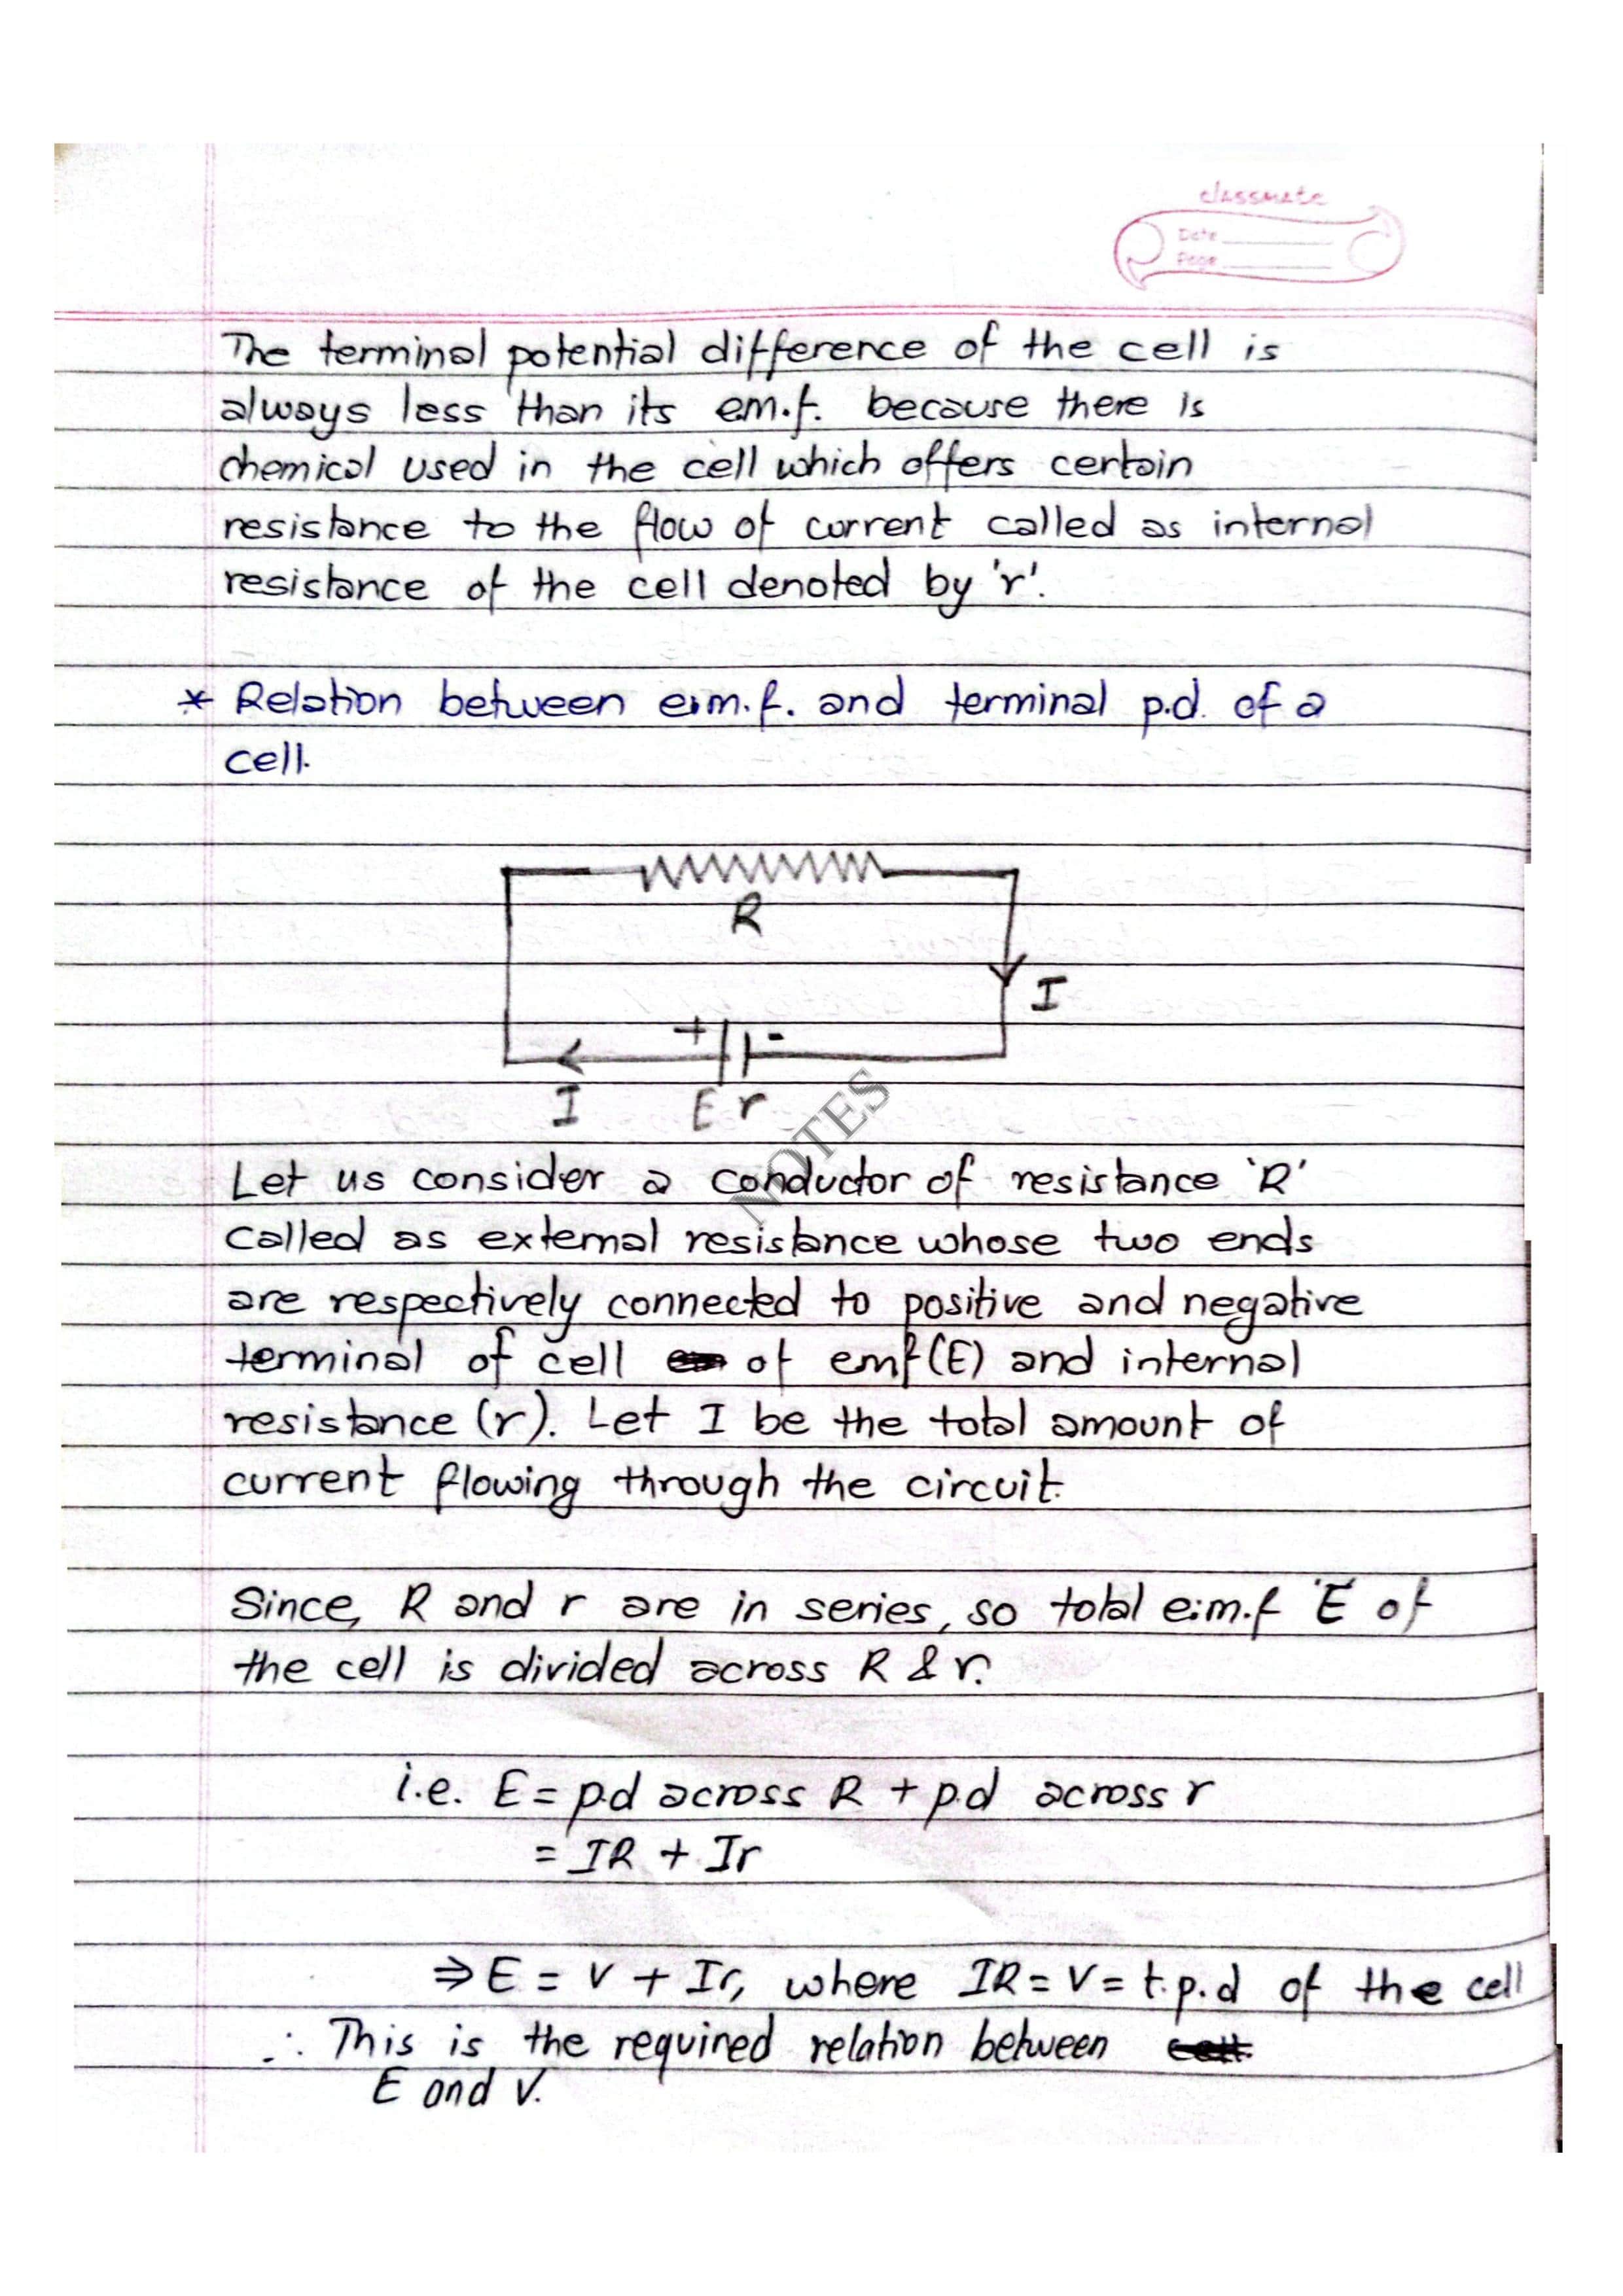 classmate
Date
Page
The terminal potential difference of the cell is
always less than its e.m.f. because there is
chemical used in the cell which offers certain
resistance to the flow of current called as internal
resistance of the cell denoted by 'r'.
* Relation between e.m.f. and terminal p.d. of a
cell.
R
I
+ -
I E r
NOTES
Let us consider a conductor of resistance 'R'
called as external resistance whose two ends
are respectively connected to positive and negative
terminal of cell of emf (E) and internal
resistance (r). Let I be the total amount of
current flowing through the circuit.
Since, R and r are in series, so total e.m.f 'E' of
the cell is divided across R & r.
i.e. E = p.d across R + p.d across r
= IR + Ir
⇒ E = V + Ir, where IR = V = t.p.d of the cell
∴ This is the required relation between
E and V.